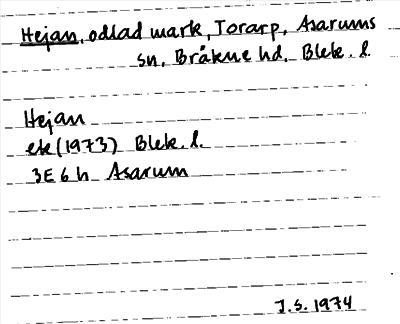 Hejan, odlad mark, Torarp, Asarums
sn, Bräkne hd, Blek. l.
Hejan
ek (1973) Blek. l.
3E 6h Asarum
J.S. 1974